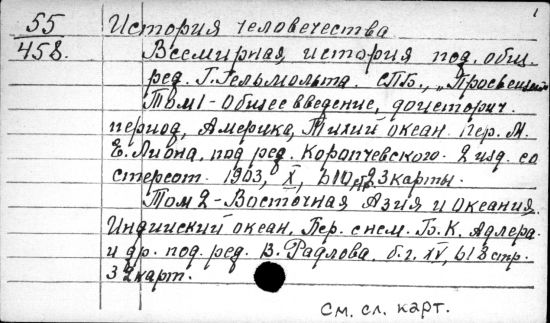 1
55 История человечества
458. Всемирная история под общ.
ред. Г. Гельмольта. СПБ., „Просвещение
Том 1 - Общее введение, доисторич.
период, Америка, Тихий океан. Пер. М.
Е. Лиона, под ред. Коропчевского. 2 изд. со
стереот. 1903, X, 610, 23 карты.
Том 2 - Восточная Азия и Океания.
Индийский океан. Пер. с нем. Б. К. Адлера
и др. под. ред. В. Радлова. б. г. XV, 613 стр.
32 карт.
См. сл. карт.